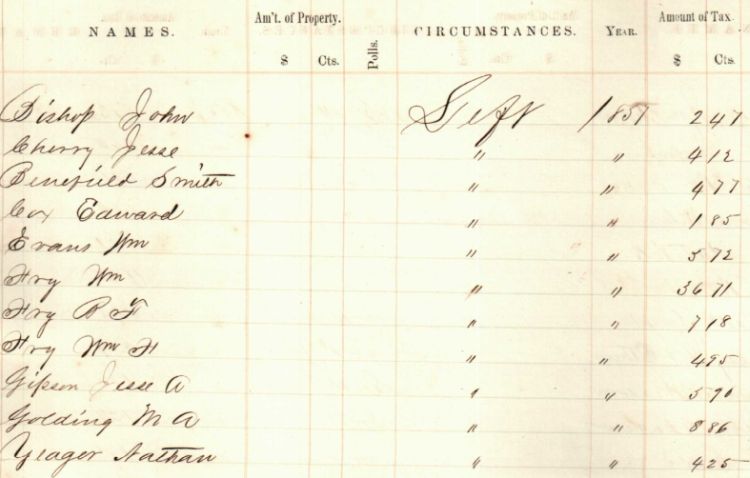 NAMES. Am't. of Property. Polls. CIRCUMSTANCES. YEAR. Amount of Tax
$ Cts. $ Cts.
Bishop John Left 1857 2 47
Cherry Jesse " " 4 12
Benefield Smith " " 4 77
Cox Edward " " 1 85
Evans Wm " " 5 72
Fry Wm " " 36 71
Fry B F " " 7 18
Fry Wm F " " 4 95
Gipson Jesse A " " 5 90
Golding M A " " 8 86
Yeager Nathan " " 4 25